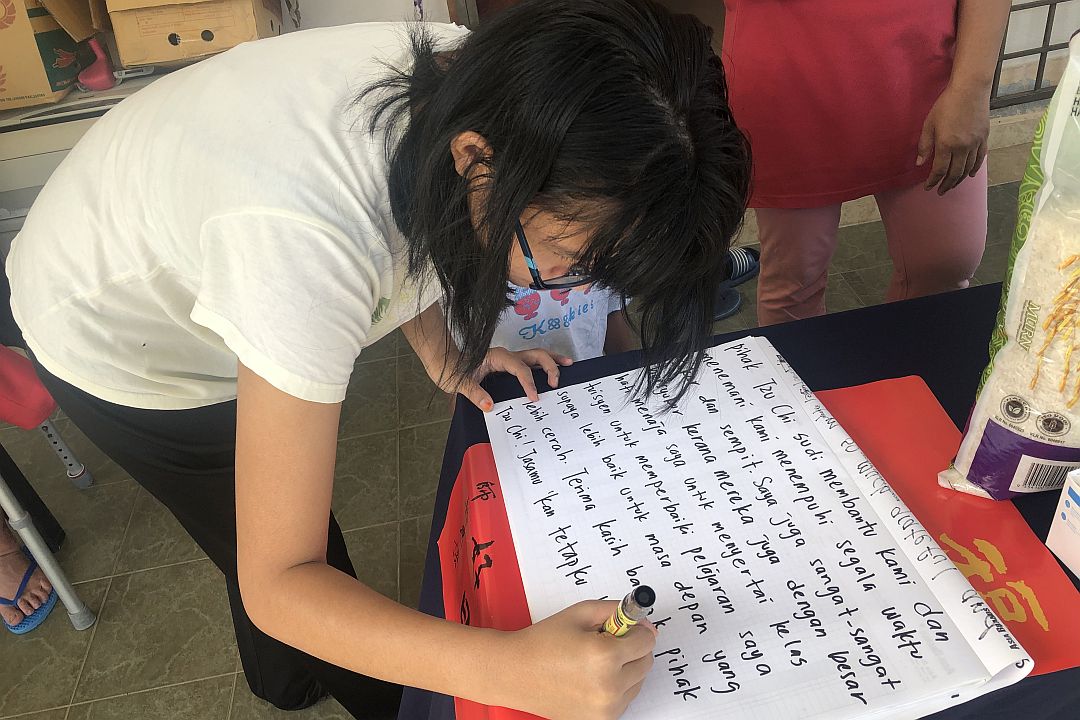 pihak Tzu Chi sudi membantu kami dan
menemani kami menempuhi segala waktu
dan sempit. Saya juga sangat-sangat
kerana mereka juga dengan besar
menaja saya untuk menyertai kelas
tuisyen untuk memperbaiki pelajaran saya
supaya lebih baik untuk masa depan yang
lebih cerah. Terima kasih pihak
Tzu Chi. Jasamu 'kan tetapku